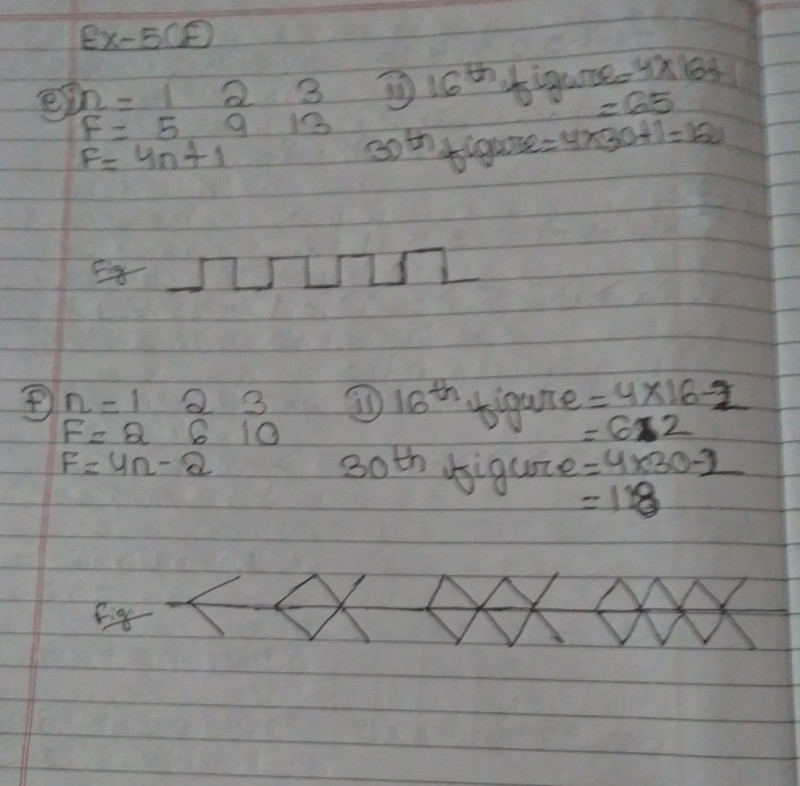 Ex-5(F)
e) i) n = 1 2 3 ii) 16th figure = 4×16+1
F = 5 9 13 = 65
F = 4n+1 30th figure = 4×30+1 = 121
Fig
f) n = 1 2 3 ii) 16th figure = 4×16-2
F = 2 6 10 = 62
F = 4n-2 30th figure = 4×30-2
= 118
Fig